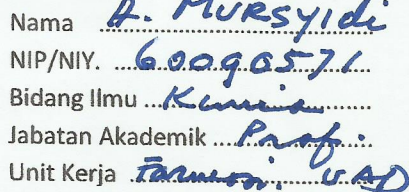 Nama A. MURSYIDI
NIP/NIY. 60090571
Bidang Ilmu Kimia
Jabatan Akademik Prof.
Unit Kerja Farmasi. UAD